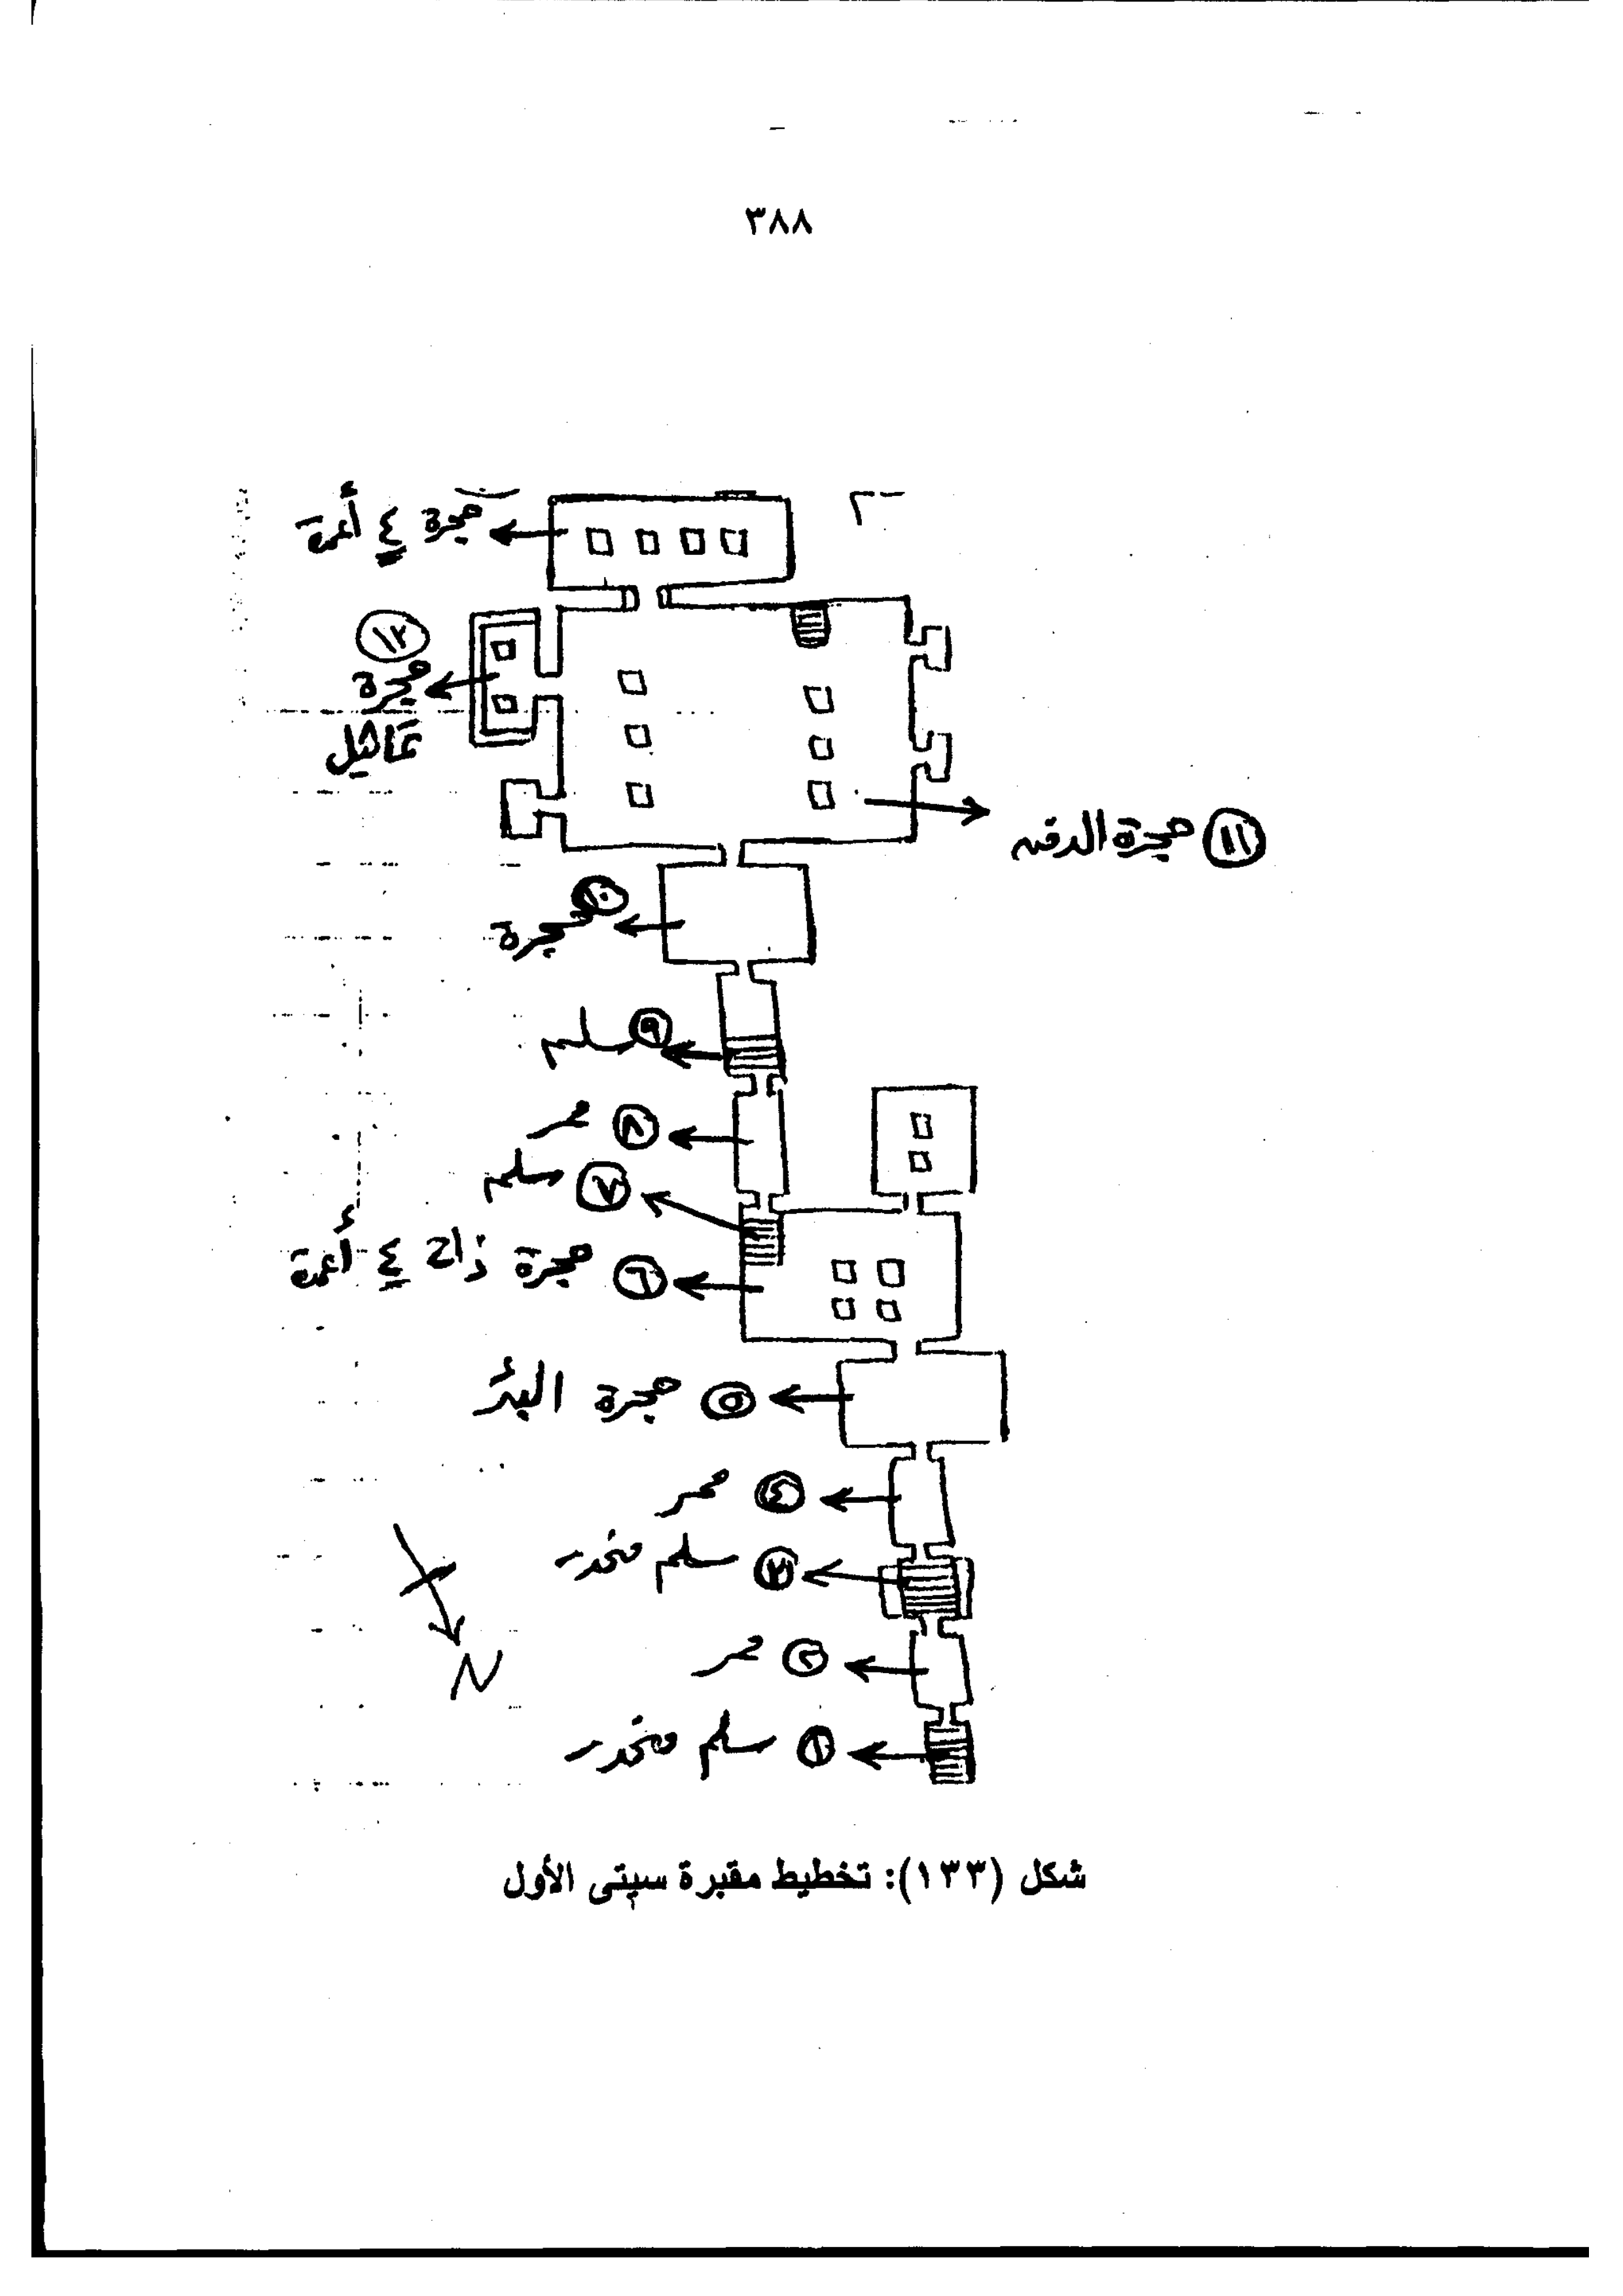 ٣٨٨
حجرة ٤ أعمدة
١٢
حجرة
تماثيل
١١ حجرة الدفن
١٠
حجرة
٩ سلم
٨ ممر
٧ سلم
٦ حجرة ذات ٤ أعمدة
٥ حجرة البئر
٤ ممر
٣ سلم منحدر
٢ ممر
١ سلم منحدر
N
شكل (١٣٣): تخطيط مقبرة سيتى الأول